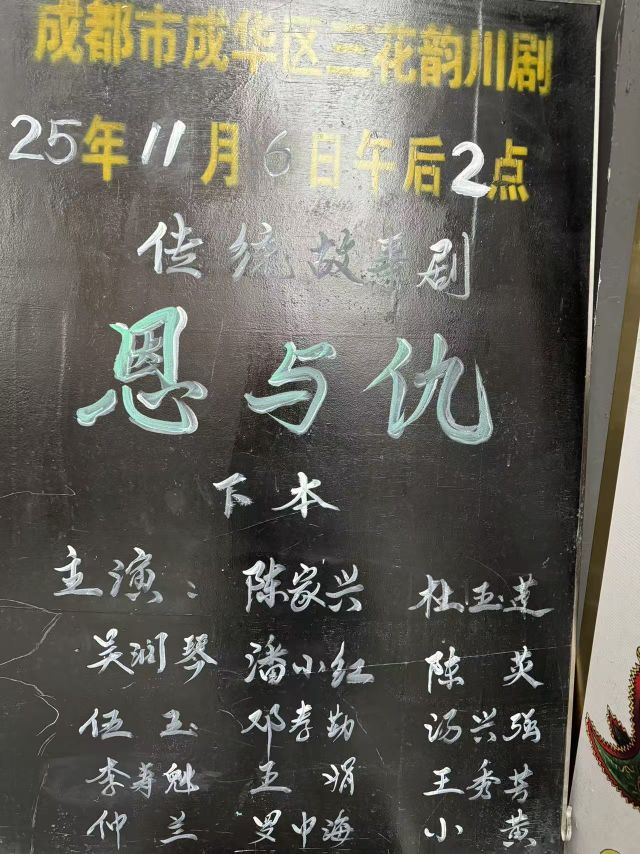 成都市成华区三花韵川剧
25年11月6日午后2点
传统故事剧
恩与仇
下本
主演：陈家兴 杜玉莲
吴润琴 潘小红 陈英
伍玉 邓孝勤 汤兴强
李寿魁 王娟 王秀芳
仲兰 罗中海 小黄